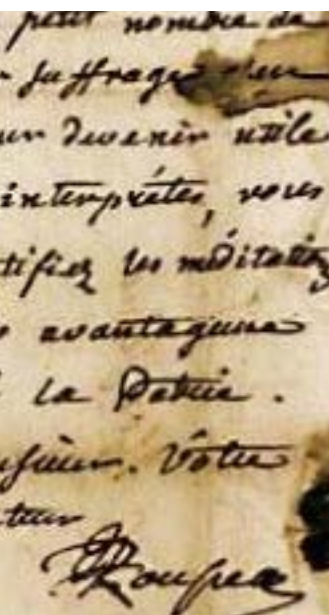 petit nombre de
suffrages
devenir utile
interprétés, vous
tifiez les méditations
avantageuse
la Patrie.
nsieur. Votre
teur